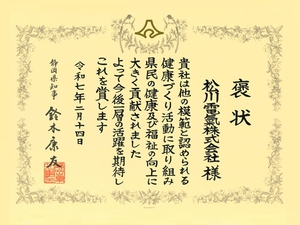 褒状
松川電氣株式会社 様
貴社は他の模範と認められる
健康づくり活動に取り組み
県民の健康及び福祉の向上に
大きく貢献されました
よって今後一層の活躍を期待し
これを賞します
令和七年二月十四日
静岡県知事 鈴木康友